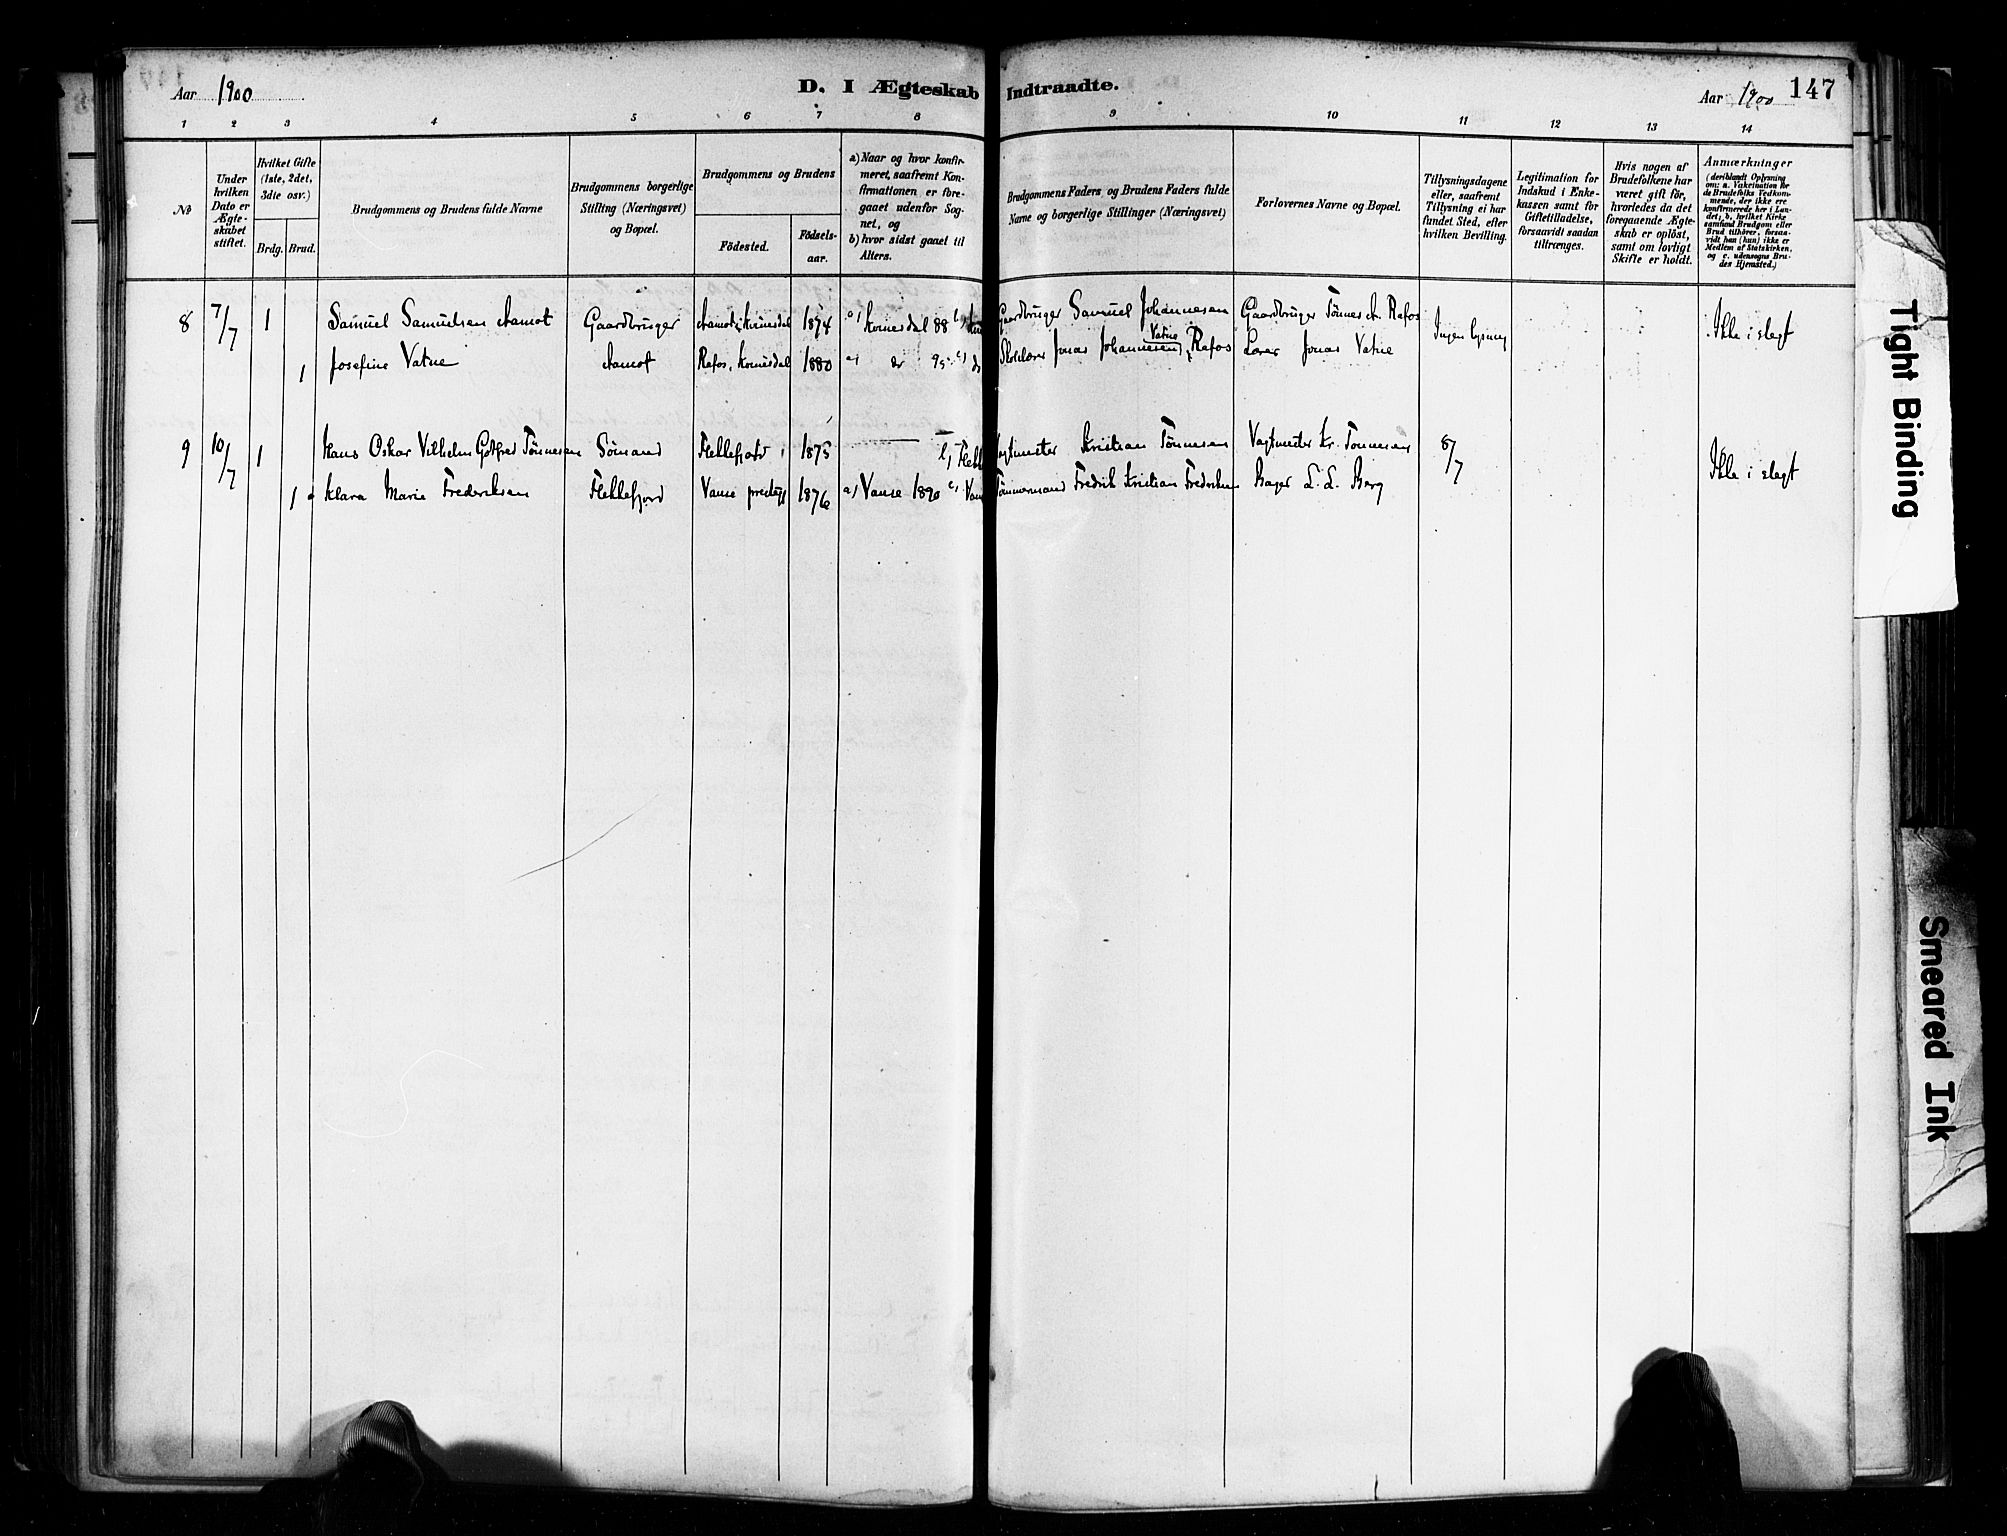 Aar 1900
D. I Ægteskab Indtraadte.
Aar 1900
147
1 2 3 4 5 6 7 8 9 10 11 12 13 14
№
Under hvilken Dato er Ægteskabet stiftet.
Hvilket Gifte (1ste, 2det, 3die osv.)
Brdg. Brud.
Brudgommens og Brudens fulde Navne
Brudgommens borgerlige Stilling (Næringsvei) og Bopæl.
Brudgommens og Brudens
Födested.
Födselsaar.
a) Naar og hvor konfirmeret, saafremt Konfirmationen er foregaaet udenfor Sognet, og
b) hvor sidst gaaet til Alters.
Brudgommens Faders og Brudens Faders fulde Navne og borgerlige Stillinger (Næringsvei)
Forlovernes Navne og Bopæl.
Tillysningsdagene eller, saafremt Tillysning ei har fundet Sted, efter hvilken Bevilling.
Legitimation for Indskud i Enkekassen samt for Giftetilladelse, forsaavidt saadan tiltrænges.
Hvis nogen af Brudefolkene har været gift før, hvorledes da det foregaaende Ægteskab er oplöst, samt om lovligt Skifte er holdt.
Anmærkninger
(deriblandt Oplysning om: a. Vakcination for de Brudefolks Vedkommende, der ikke ere konfirmerede her i Landet; b. hvilket Kirkesamfund Brudgom eller Brud tilhörer, forsaavidt han (hun) ikke er Medlem af Statskirken, og c. udensogns Brudes Hjemsted.)
8 7/7 1 Samuel Samuelsen Aamot Gaardbruger Aamot, Kvinesdal 1874 a) Kvinesdal 88 b) Gaardbruger Samuel Johannesen Gaardbruger Tönnes A. Rafos Ingen lysning Ikke i slegt
1 Josefine Vatne Aamot Rafos, Kvinesdal 1880 a) do 95 do Jonas Johannesen Vatne, Rafos Lærer Jonas Vatne
9 10/7 1 Hans Oskar Vilhelm Gotfred Tönnesen Sömand Flekkefjord 1875 b) Flekk Kristian Tönnesen Vagtmester Kr. Tönnesen 8/7 Ikke i slegt
1 Klara Marie Frederiksen Flekkefjord Vanse prestegj 1876 a) Vanse 1890 Van Tömmermand Fredrik Kristian Frederiksen Bager L. L. Berg
Tight Binding
Smeared Ink